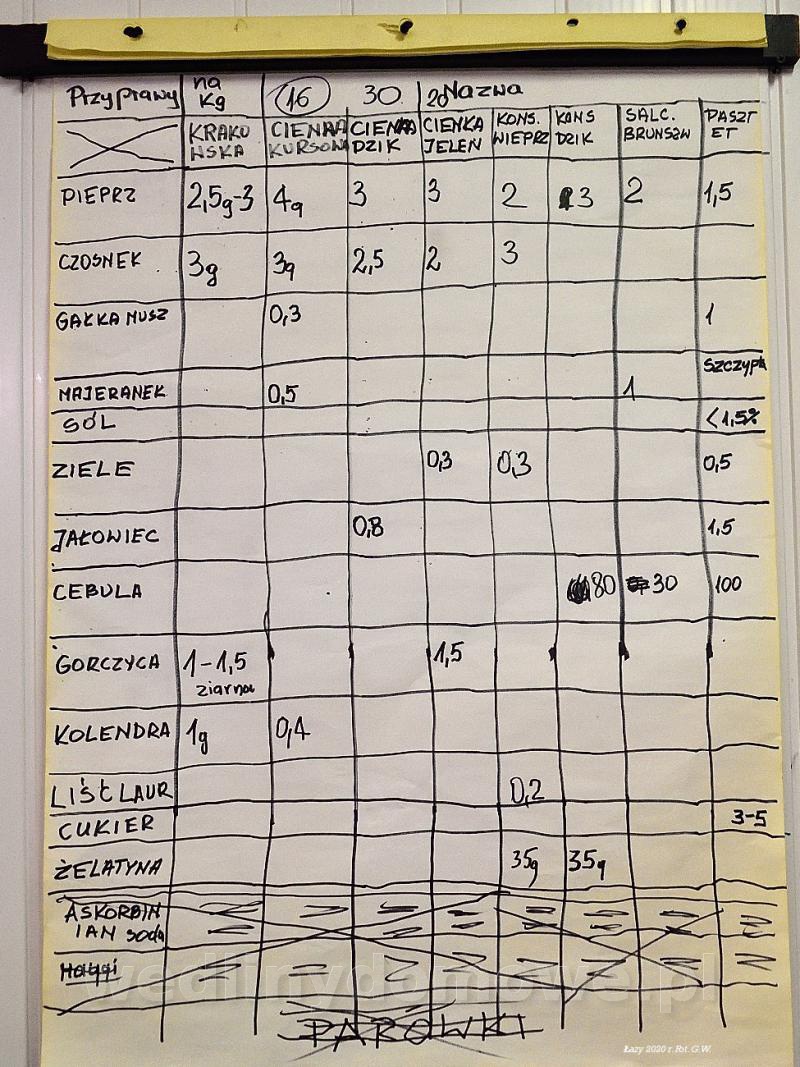 Przyprawy na Kg 16 30 20 Nazwa
KRAKO WSKA CIENKA KURSOWA CIENKA DZIK CIENKA JELEN KONS. WIEPRZ KONS DZIK SALC. BRUNSZW PASZT ET
PIEPRZ 2,5g-3 4g 3 3 2 3 2 1,5
CZOSNEK 3g 3g 2,5 2 3
GAŁKA MUSZ 0,3 1
szczypta
MAJERANEK 0,5 1
SÓL <1,5%
ZIELE 0,3 0,3 0,5
JAŁOWIEC 0,8 1,5
CEBULA 80 30 100
GORCZYCA 1-1,5 1,5
ziarna
KOLENDRA 1g 0,4
LIŚĆ LAUR 0,2
CUKIER 3-5
ŻELATYNA 35g 35g
ASKORBIN
IAN soda
Maggi
wedlinydomowe.pl
PARÓWKI
Łazy 2020 r. Fot. G.W.